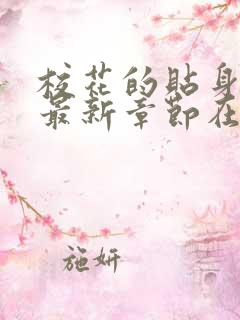 校花的贴身
最新章节在
施妍